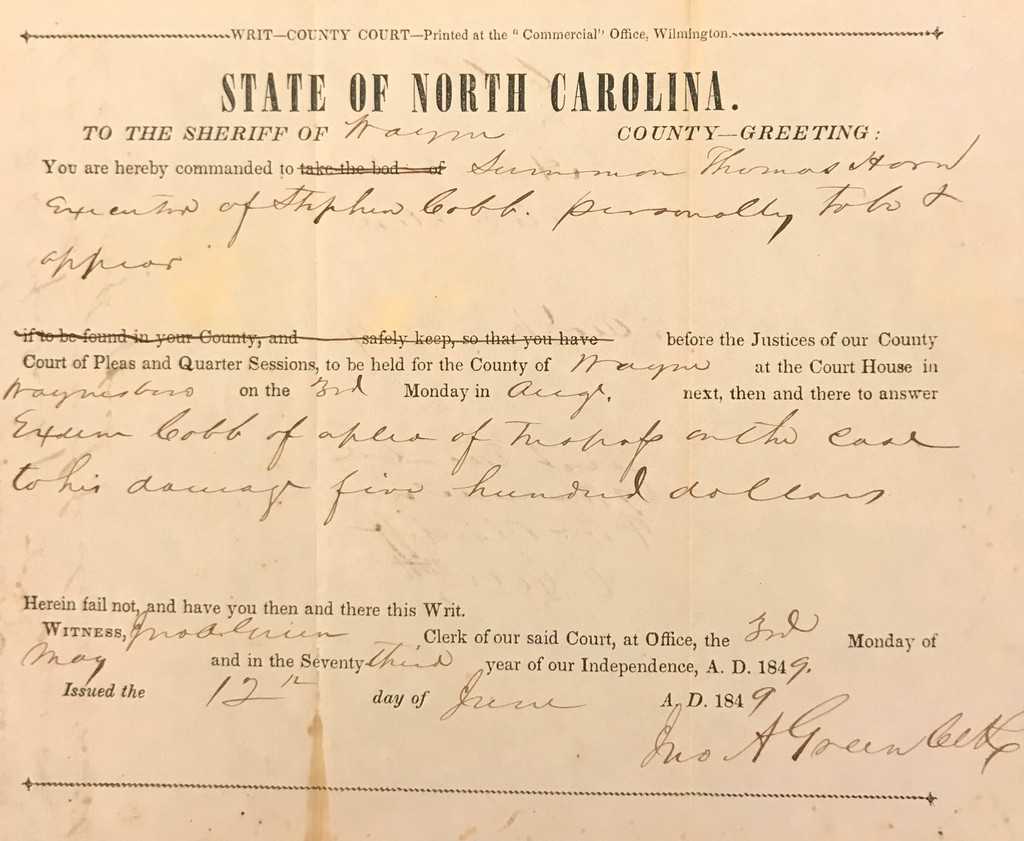 WRIT—COUNTY COURT—Printed at the "Commercial" Office, Wilmington.
STATE OF NORTH CAROLINA.
TO THE SHERIFF OF Wayne COUNTY—GREETING:
You are hereby commanded to take the bod of Summon Thomas Horn
Executor of Stephen Cobb. personally to be &
appear
if to be found in your County, and safely keep, so that you have before the Justices of our County
Court of Pleas and Quarter Sessions, to be held for the County of Wayne at the Court House in
Waynesboro on the 3rd Monday in Augt. next, then and there to answer
Cobb of a plea of Trespass on the case
to his damage five hundred dollars
Herein fail not, and have you then and there this Writ.
WITNESS, Jno A Green Clerk of our said Court, at Office, the 3rd Monday of
May and in the Seventy third year of our Independence, A. D. 1849.
Issued the 12th day of June A. D. 1849
Jno A Green Clk